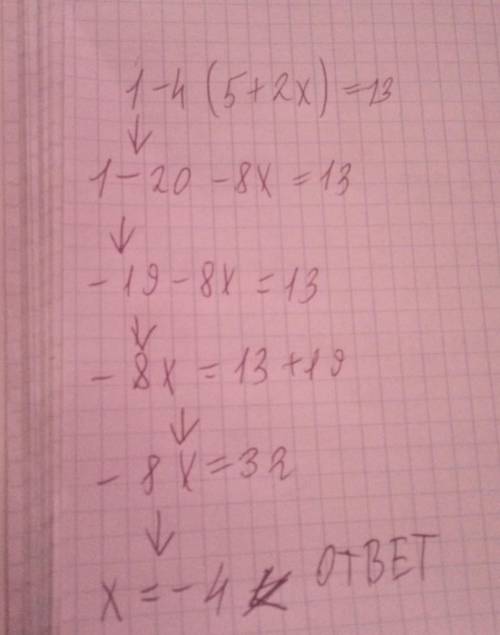 1-4(5+2x)=13
↓
1-20-8x=13
↓
-19-8x=13
↓
-8x=13+19
↓
-8x=32
↓
x=-4 ← ОТВЕТ